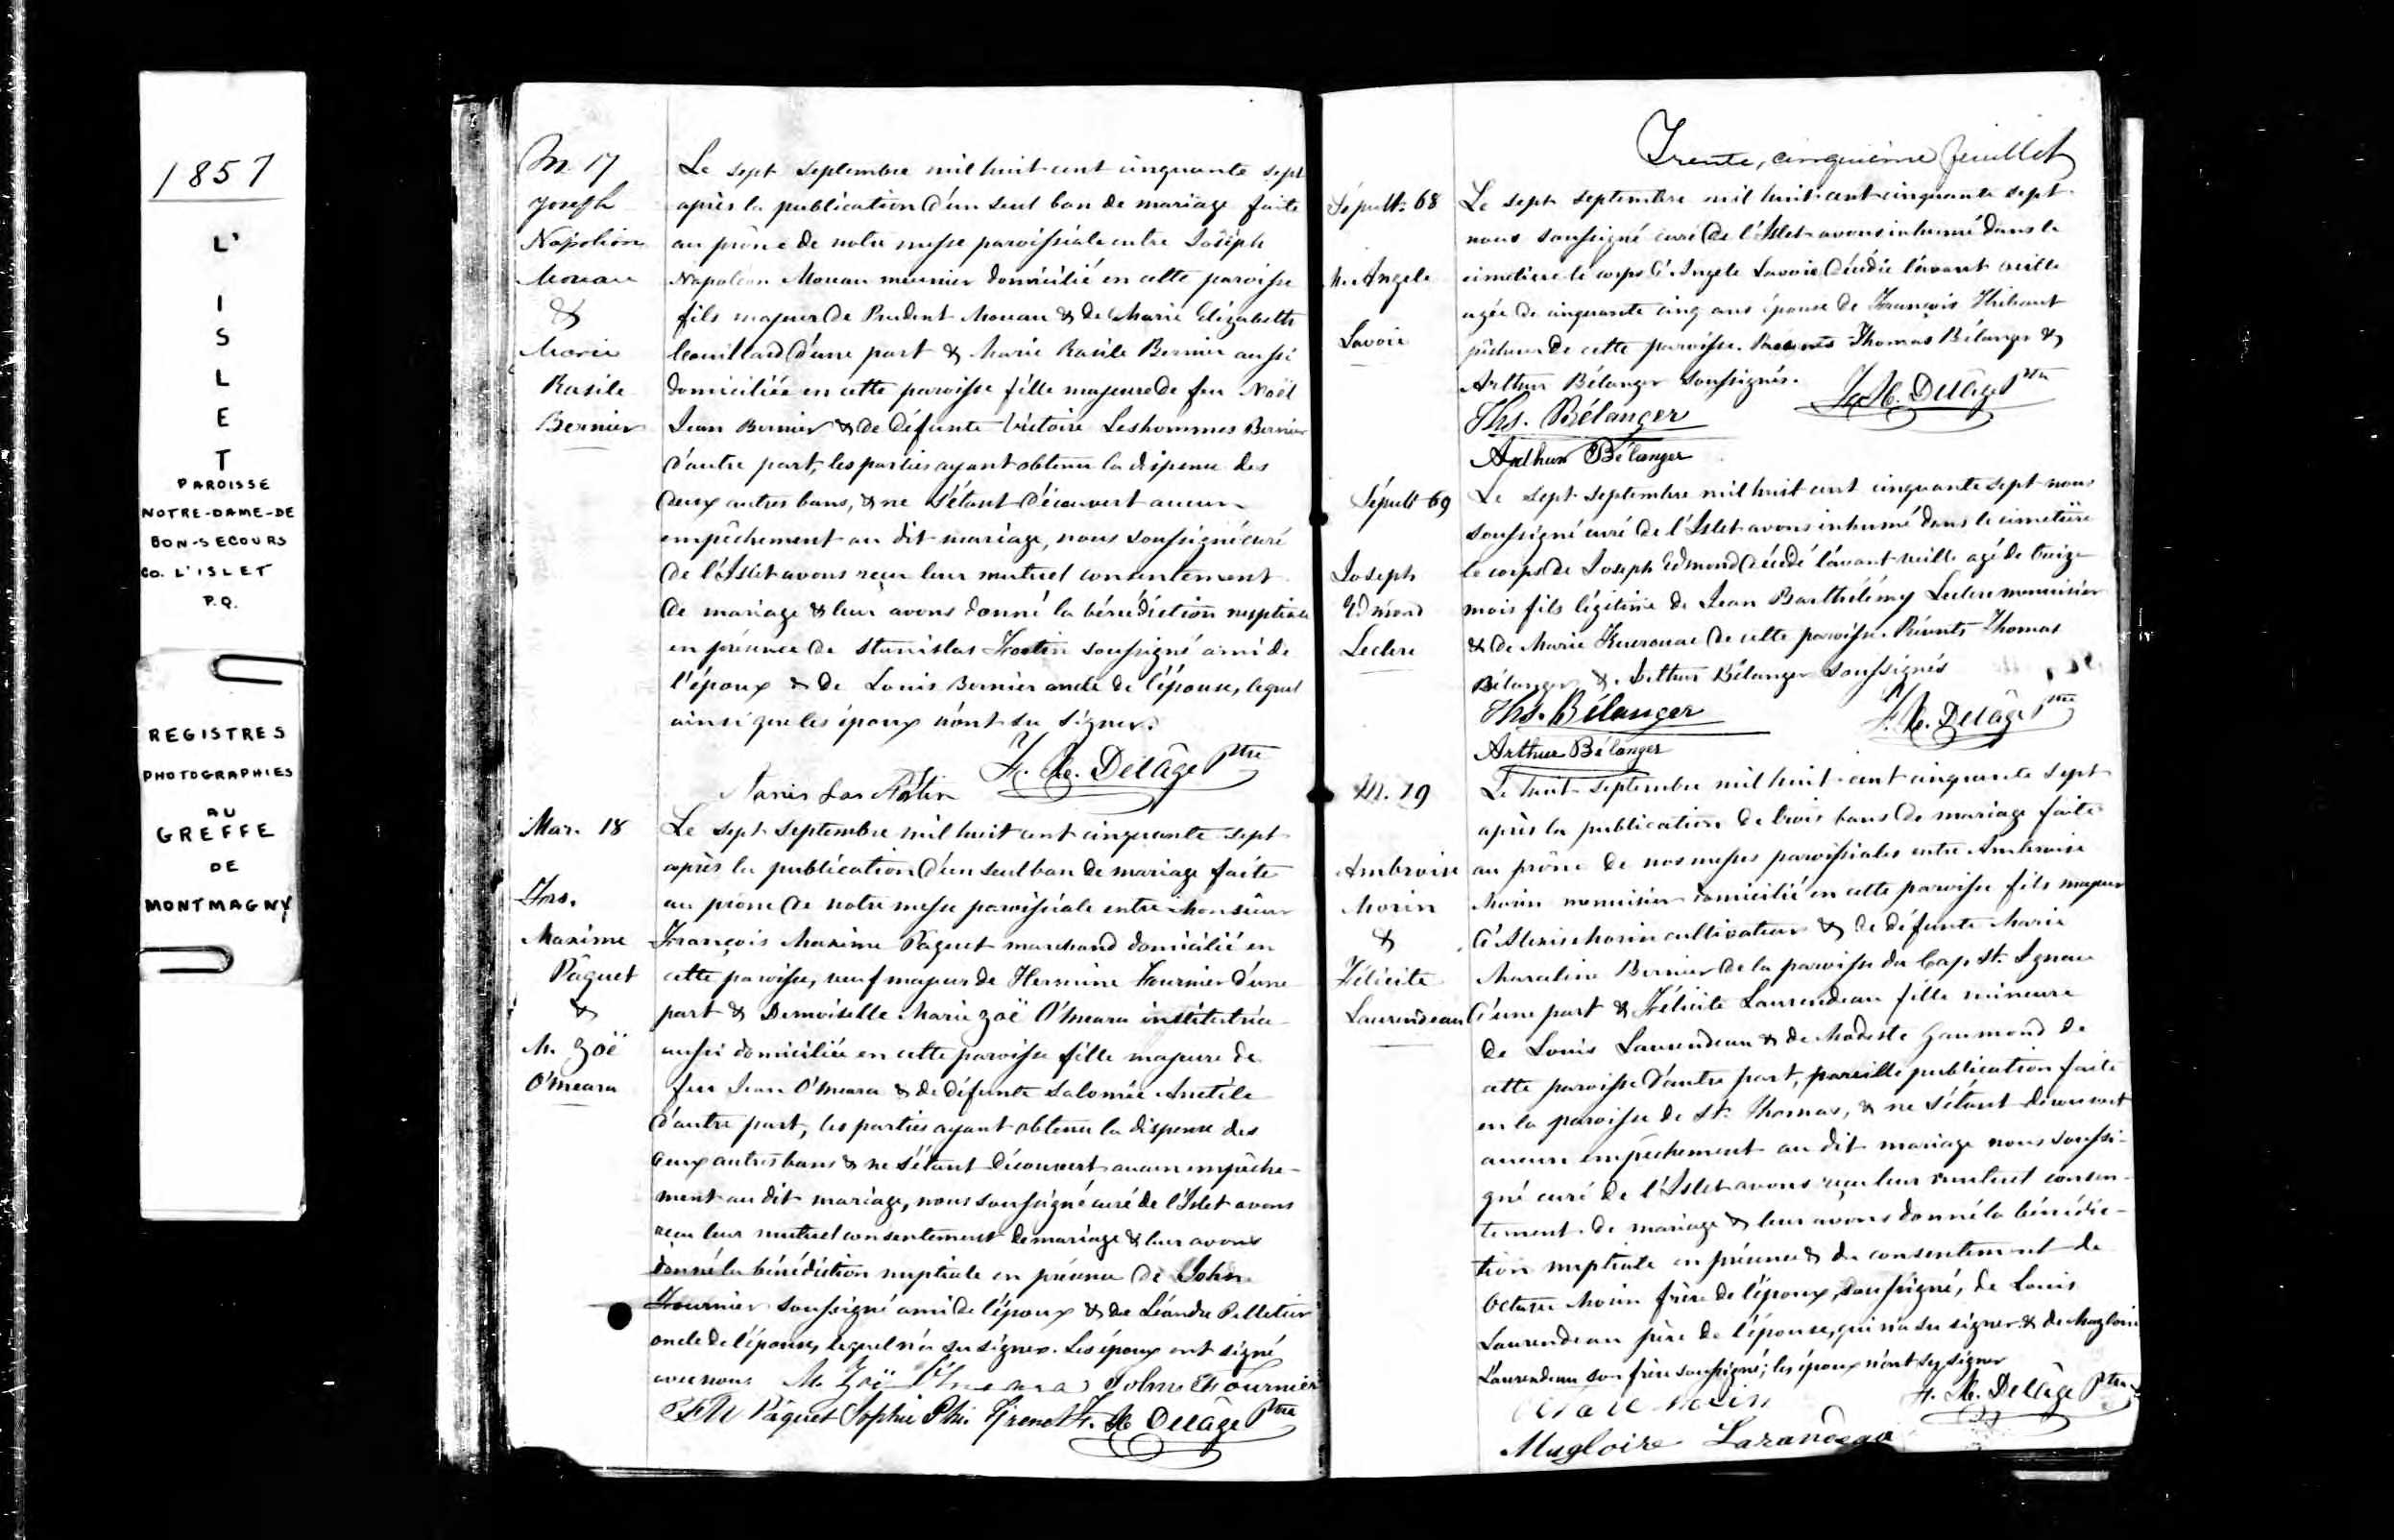 1857
L'
I
S
L
E
T
PAROISSE
NOTRE-DAME-DE
BON-SECOURS
CO. L'ISLET
P.Q.
REGISTRES
PHOTOGRAPHIES
AU
GREFFE
DE
MONTMAGNY
M. 17
Joseph
Napoléon
Morau
&
Marie
Basile
Bernier
Le sept septembre mil huit cent cinquante sept
après la publication d'un seul ban de mariage faite
au prône de notre messe paroissiale entre Joseph
Napoléon Morau meunier domicilié en cette paroisse
fils majeur de Prudent Morau & de Marie Elizabeth
Couillard d'une part & Marie Basile Bernier aussi
domiciliée en cette paroisse fille majeure de feu Noël
Jean Bernier & de défunte Victoire Leshommes Bernier
d'autre part, les parties ayant obtenu la dispense des
deux autres bans, & ne s'étant découvert aucun
empêchement au dit mariage, nous soussigné curé
de l'Islet avons reçu leur mutuel consentement
de mariage & leur avons donné la bénédiction nuptiale
en présence de Stanislas Fortin soussigné ami de
l'époux & de Louis Bernier oncle de l'épouse, lequel
ainsi que les époux n'ont su signer.
F. X. Delâge Ptre
Mar. 18
Frs.
Maxime
Pâquet
&
M. Zoë
O'Meara
Le sept septembre mil huit cent cinquante sept
après la publication d'un seul ban de mariage faite
au prône de notre messe paroissiale entre Monsieur
François Maxime Pâquet marchand domicilié en
cette paroisse, veuf majeur de Hermine Fournier d'une
part & Demoiselle Marie Zoë O'Meara institutrice
aussi domiciliée en cette paroisse fille majeure de
feu Jean O'Meara & de défunte Salomée
d'autre part, les parties ayant obtenu la dispense des
deux autres bans & ne s'étant découvert aucun empêche-
ment au dit mariage, nous soussigné curé de l'Islet avons
reçu leur mutuel consentement de mariage & leur avons
donné la bénédiction nuptiale en présence de John
Fournier soussigné ami de l'époux & de Léandre Pelletier
oncle de l'épouse, lequel n'a su signer. Les époux ont signé
avec nous M. Zoë O'Meara John Fournier
F M Pâquet Sophie F. X. Delâge Ptre
Trente, cinquième feuillet
Sépult. 68
M. Angele
Lavoie
Le sept septembre mil huit cent cinquante sept
nous soussigné curé de l'Islet avons inhumé dans le
cimetiere le corps d'Angele Lavoie décédée l'avant veille
agée de cinquante cinq ans épouse de François Thibaut
pêcheur de cette paroisse. Présents Thomas Bélanger &
Arthur Bélanger soussignés.
F. X. Delâge Ptre
Ths. Bélanger
Arthur Bélanger
Sépult 69
Joseph
Edmond
Leclerc
Le sept septembre mil huit cent cinquante sept nous
soussigné curé de l'Islet avons inhumé dans le cimetière
le corps de Joseph Edmond décédé l'avant veille agé de treize
mois fils légitime de Jean Barthélémy Leclerc menuisier
& de Marie Kuerouac de cette paroisse. Présents Thomas
Bélanger & Arthur Bélanger soussignés
Ths. Bélanger F. X. Delâge Ptre
Arthur Bélanger
M. 19
Ambroise
Morin
&
Félicite
Laurendeau
Le huit septembre mil huit cent cinquante sept
après la publication de trois bans de mariage faite
au prône de nos messes paroissiales entre Ambroise
Morin menuisier domicilié en cette paroisse fils majeur
d'Alexis Morin cultivateur & de défunte Marie
Marceline Bernier de la paroisse du Cap St. Ignace
d'une part & Félicite Laurendeau fille mineure
de Louis Laurendeau & de Modeste Gaumond de
cette paroisse d'autre part, pareille publication faite
en la paroisse de St. Thomas, & ne s'étant découvert
aucun empêchement au dit mariage nous soussi-
gné curé de l'Islet avons reçu leur mutuel consen-
tement de mariage & leur avons donné la bénédic-
tion nuptiale en présence & du consentement de
Octave Morin frère de l'époux, soussigné, de Louis
Laurendeau père de l'épouse, qui n'a su signer & de Magloire
Laurendeau son frère soussigné; les époux n'ont su signer
Octave Morin F. X. Delâge Ptre
Magloire Larandeau